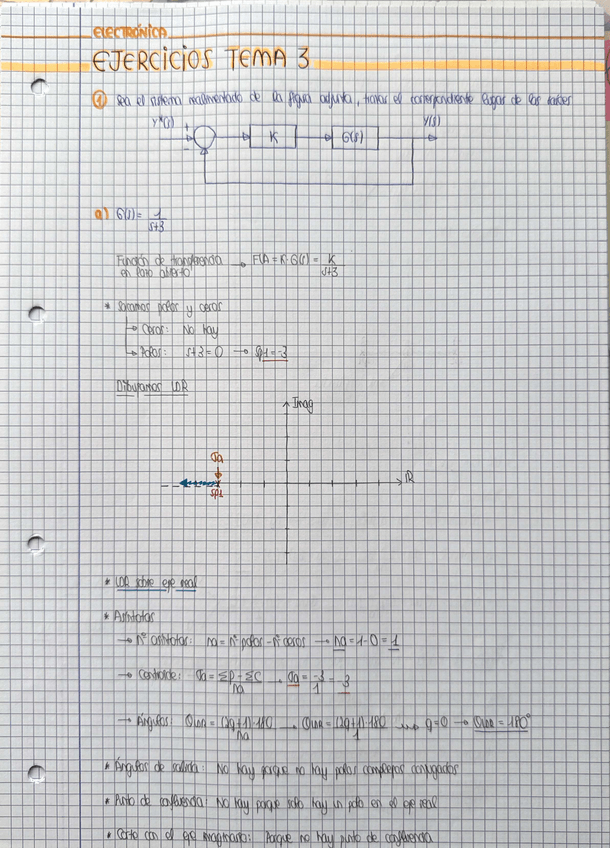 ELECTRÓNICA
EJERCICIOS TEMA 3
1 Sea el sistema realimentado de la figura adjunta, trazar el correspondiente lugar de las raíces
Y*(s) + - K G(s) Y(s)
a) G(s) = 1/(s+3)
Función de transferencia en lazo abierto → FLA = K·G(s) = K/(s+3)
* Sacamos polos y ceros
→ Ceros: No hay
→ Polos: s+3=0 → sp1=-3
Dibujamos LDR
Imag
σa
R
sp1
* LDR sobre eje real
* Asíntotas
→ Nº asíntotas: na = nº polos - nº ceros → na = 1-0 = 1
→ Centroide: σa = (ΣP - ΣC)/na σa = -3/1 - 3
→ Ángulos: = (2q+1)·180/na = (2q+1)·180/1 q=0 → = 180°
* Ángulos de salida: No hay porque no hay polos complejos conjugados
* Punto de confluencia: No hay porque solo hay un polo en el eje real
* Corte con el eje imaginario: Porque no hay punto de confluencia